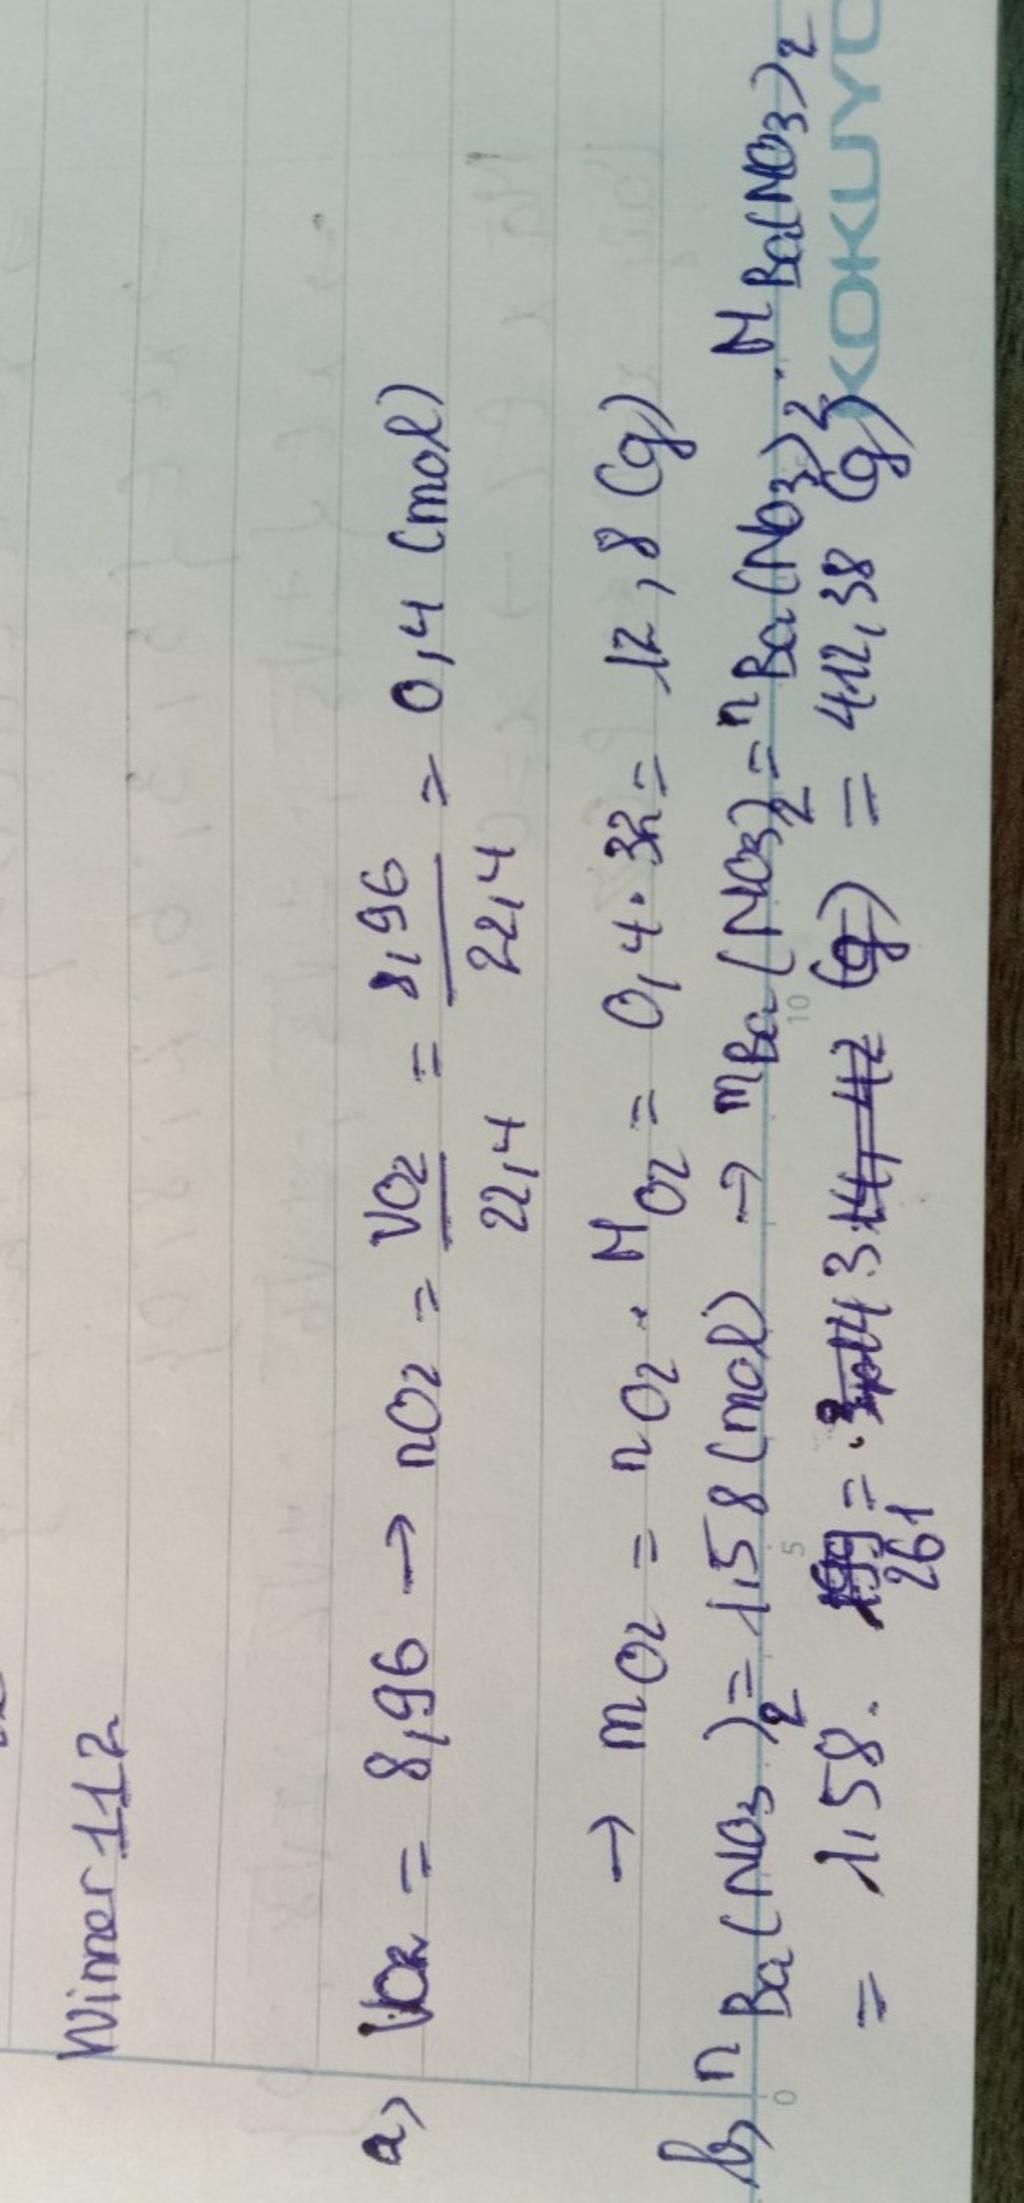 Winner 112
a) VO2 = 8,96 → nO2 = VO2/22,4 = 8,96/22,4 = 0,4 (mol)
→ mO2 = nO2 . MO2 = 0,4 . 32 = 12,8 (g)
b) nBa(NO3)2 = 1,58 (mol) → mBa(NO3)2 = nBa(NO3)2 . MBa(NO3)2
= 1,58. 261 = 412,38 (g)
KOKUYO
0 5 10